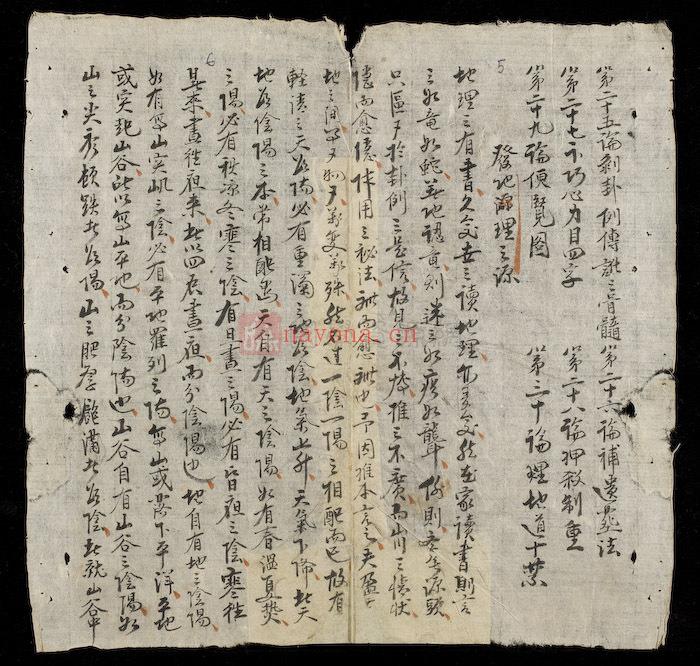 第二十五論剝卦例傳訛之骨髓 第二十六論補遺葬法
第二十七示巧心力目四字 第二十八論押殺制重
第二十九論便覽圖 第三十論理地道十業
發地源理之源
地理之有書久矣世之讀地理者矣然在家讀書則言
之如竜如蛇其地認真則迷之如痴如聾何則其本源頭
只區々於卦例之是信故目之不能推之不廣而山川之情狀
隱而愈隱体用之秘法而愈也予因推本言之夫盈
地之間萬々變殊然不過一陰一陽之相配而已故有
輕清之天為陽必有重濁之地為陰地氣上升天氣下降此天
地為陰陽之本常相配也天自有天之陰陽如有春溫夏熱
之陽必有秋凉冬寒之陰有日晝之陽必有昏夜之陰寒往
暑來晝往夜來此以四辰晝夜而分陰陽也地自有地之陰陽
如有高山突屼之陰必有平地羅列之陽高山或落下平洋平地
或突起山谷此以高山平地而分陰陽也山谷自有山谷之陰陽如
山之尖秀頭跌者為陽山之肥厚飽滿者為陰此就山谷中
5
6
nayona.cn